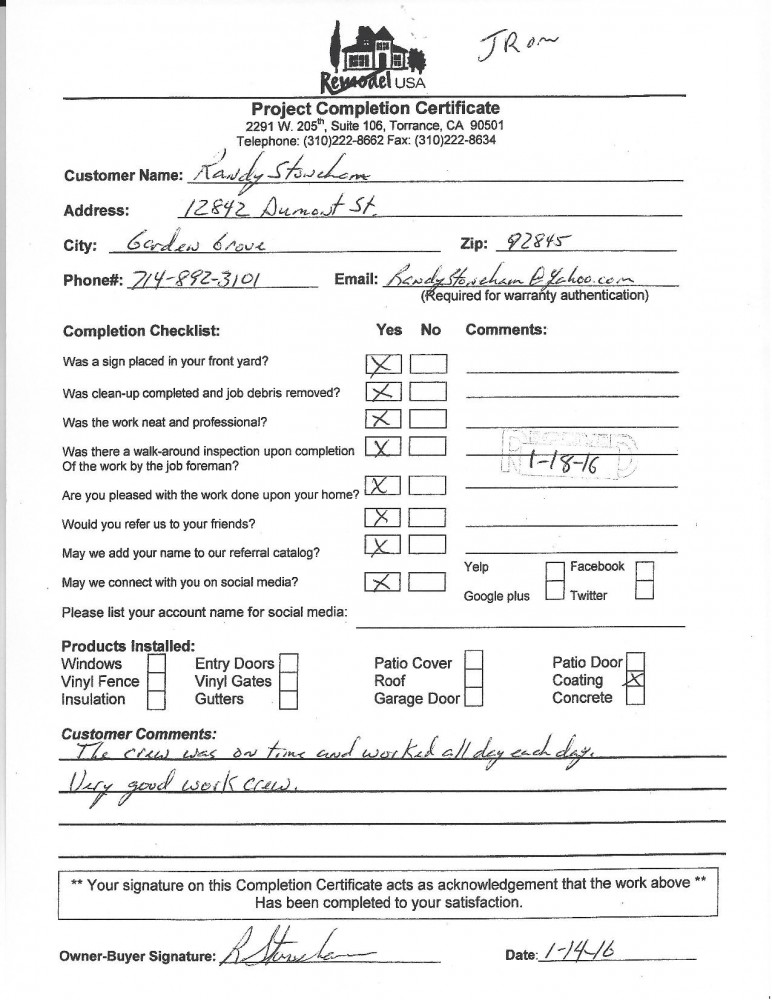 JRom
Remodel USA
Project Completion Certificate
2291 W. 205th, Suite 106, Torrance, CA 90501
Telephone: (310)222-8662 Fax: (310)222-8634
Customer Name: Randy Stoneham
Address: 12842 Dumont St.
City: Garden Grove Zip: 92845
Phone#: 714-892-3101 Email: RandyStoneham@Yahoo.com
(Required for warranty authentication)
Completion Checklist: Yes No Comments:
Was a sign placed in your front yard? X
Was clean-up completed and job debris removed? X
Was the work neat and professional? X
Was there a walk-around inspection upon completion X
Of the work by the job foreman?
RECEIVED
1-18-16
Are you pleased with the work done upon your home? X
Would you refer us to your friends? X
May we add your name to our referral catalog? X
Yelp Facebook
May we connect with you on social media? X
Google plus Twitter
Please list your account name for social media:
Products Installed:
Windows Entry Doors Patio Cover Patio Door
Vinyl Fence Vinyl Gates Roof Coating X
Insulation Gutters Garage Door Concrete
Customer Comments:
The crew was on time and worked all day each day.
Very good work crew.
** Your signature on this Completion Certificate acts as acknowledgement that the work above **
Has been completed to your satisfaction.
Owner-Buyer Signature: R Stoneham Date: 1-14-16